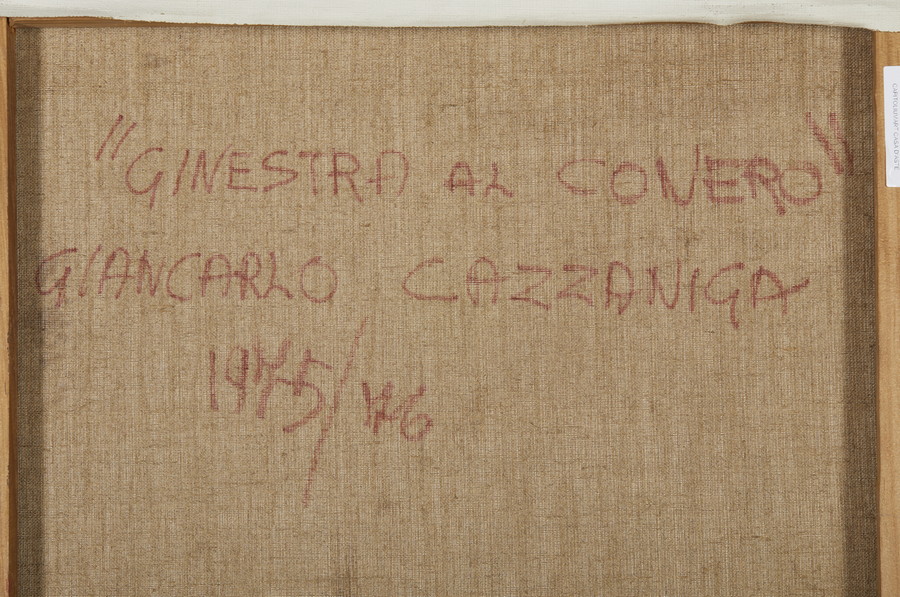 "GINESTRA AL CONERO"
GIANCARLO CAZZANIGA
1975/76